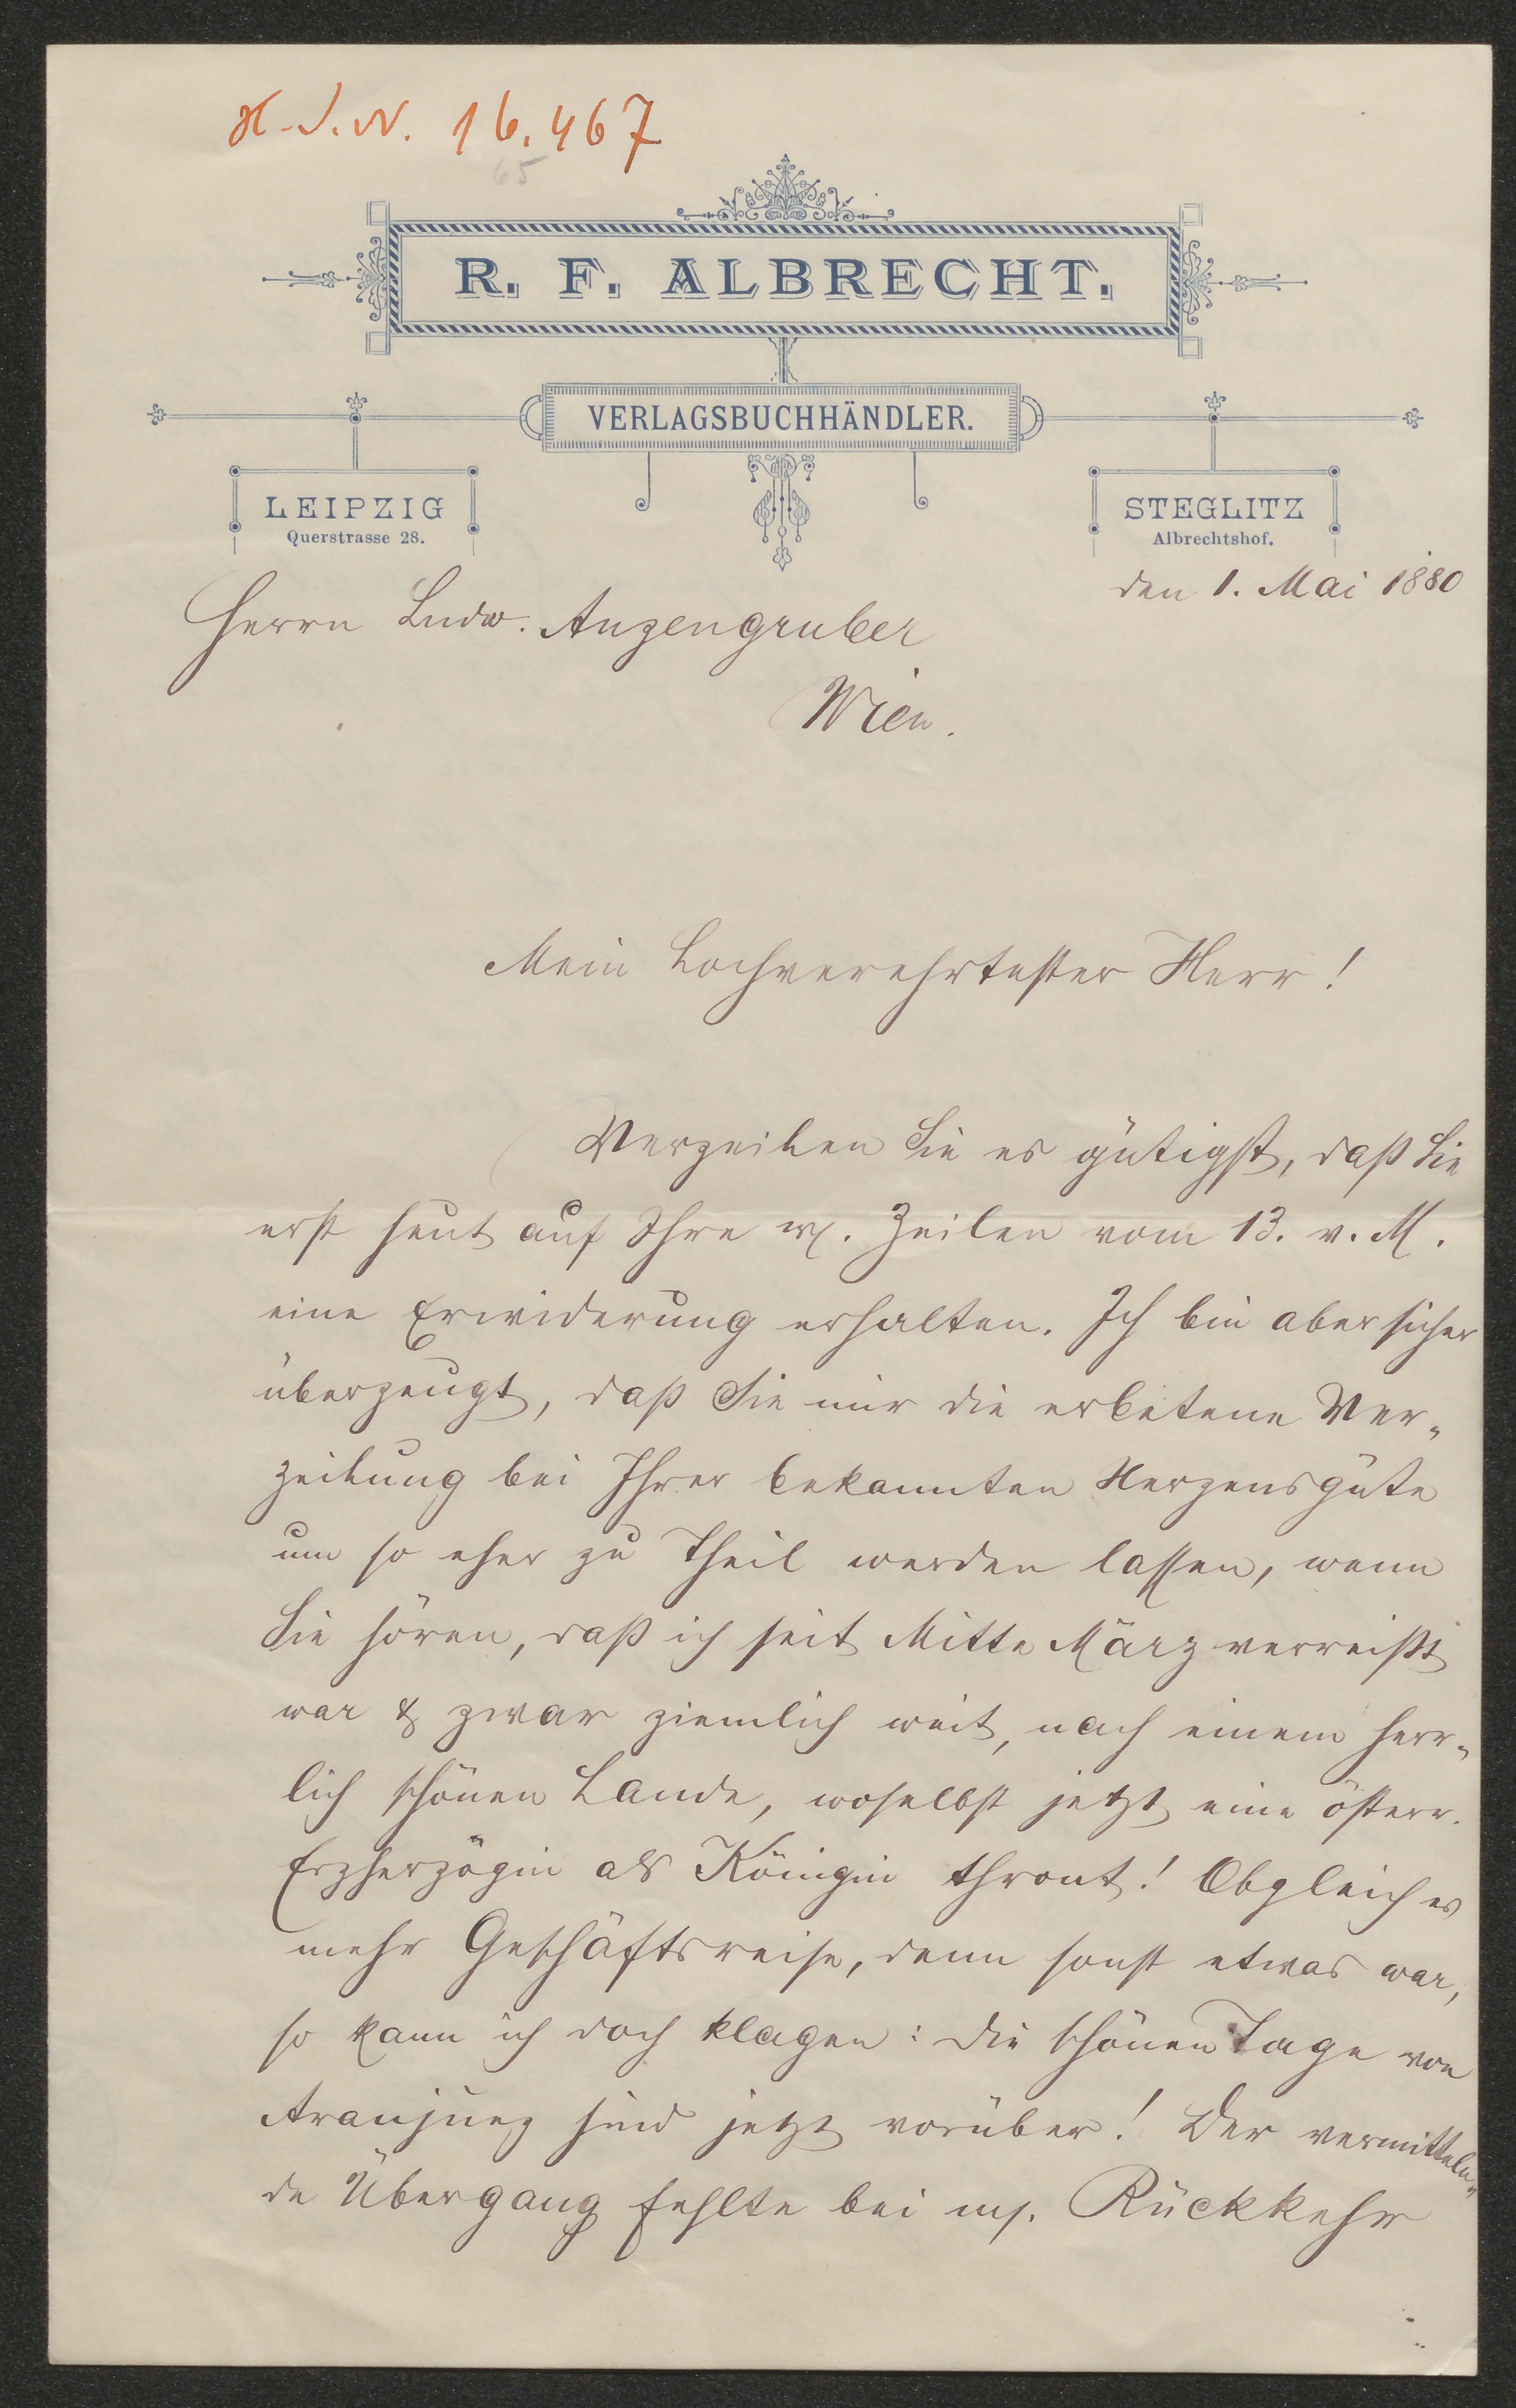 H.I.N. 16.467
65
R. F. ALBRECHT.
VERLAGSBUCHHÄNDLER.
LEIPZIG
Querstrasse 28.
STEGLITZ
Albrechtshof.
den 1. Mai 1880
Herrn Ludw. Anzengruber
Wien.
Mein hochverehrtester Herr!
Verzeihen Sie es gütigst, daß Sie
erst heut auf Ihre w. Zeilen vom 13. v. M.
eine Erwiderung erhalten. Ich bin aber sicher
überzeugt, daß Sie mir die erbetene Ver-
zeihung bei Ihrer bekannten Herzensgüte
um so eher zu Theil werden lassen, wenn
Sie hören, daß ich seit Mitte März verreißt
war & zwar ziemlich weit, nach einem herr-
lich schönen Lande, woselbst jetzt eine österr.
Erzherzögin als Königin thront! Obgleich es
mehr Geschäftsreise, denn sonst etwas war,
so kann ich doch klagen: die schönen Tage von
Aranjuez sind jetzt vorüber! Der vermitteln-
de Übergang fehlte bei m. Rückkehr